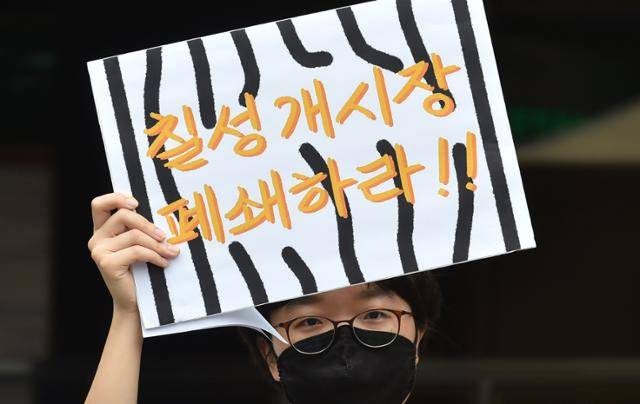 칠성개시장
폐쇄하라!!